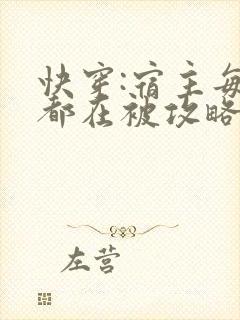 快穿:宿主每
都在被攻略
左营